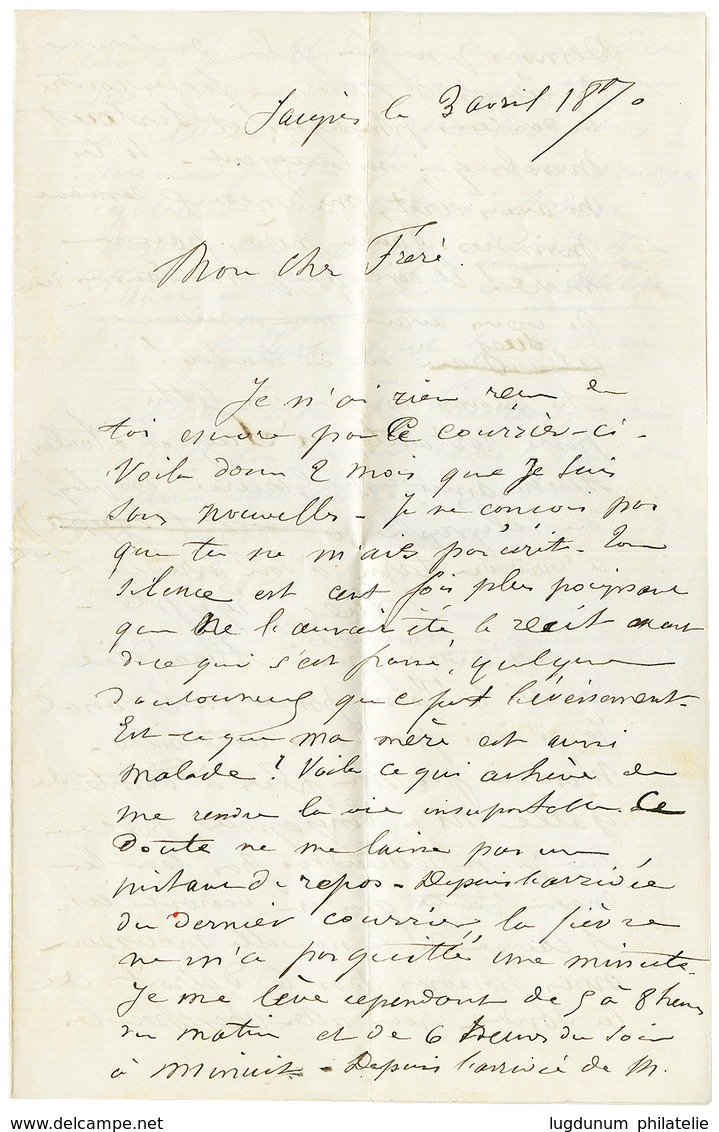 Saigon le 3 avril 1870
Mon cher Frère.
Je n'ai rien reçu de
toi encore par ce courrier-ci.
Voilà donc 2 mois que je suis
sans nouvelles - Je ne conçois pas
que tu ne m'aies pas écrit. Ton
silence est cent fois plus poignant
que ne l'aurait été le récit exact
de ce qui s'est passé, quelque
douloureux que fut l'événement.
Est-ce que ma mère est aussi
malade ? Voilà ce qui achève de
me rendre la vie insupportable. Ce
Doute ne me laisse pas un
instant de repos - Depuis l'arrivée
du dernier courrier, la fièvre
ne m'a pas quitté une minute.
Je me lève cependant de 5 à 8 heures
du matin et de 6 heures du soir
à minuit - Depuis l'arrivée de M.
www.delcampe.net
lugdunum philatelie